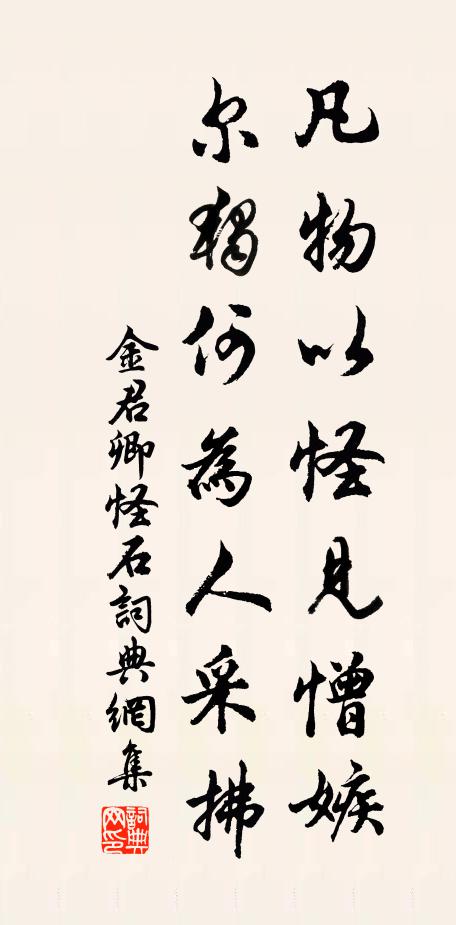 凡物以怪見憎嫉
尔獨何為人采拂
金君卿怪石詞典網集
詞典網印